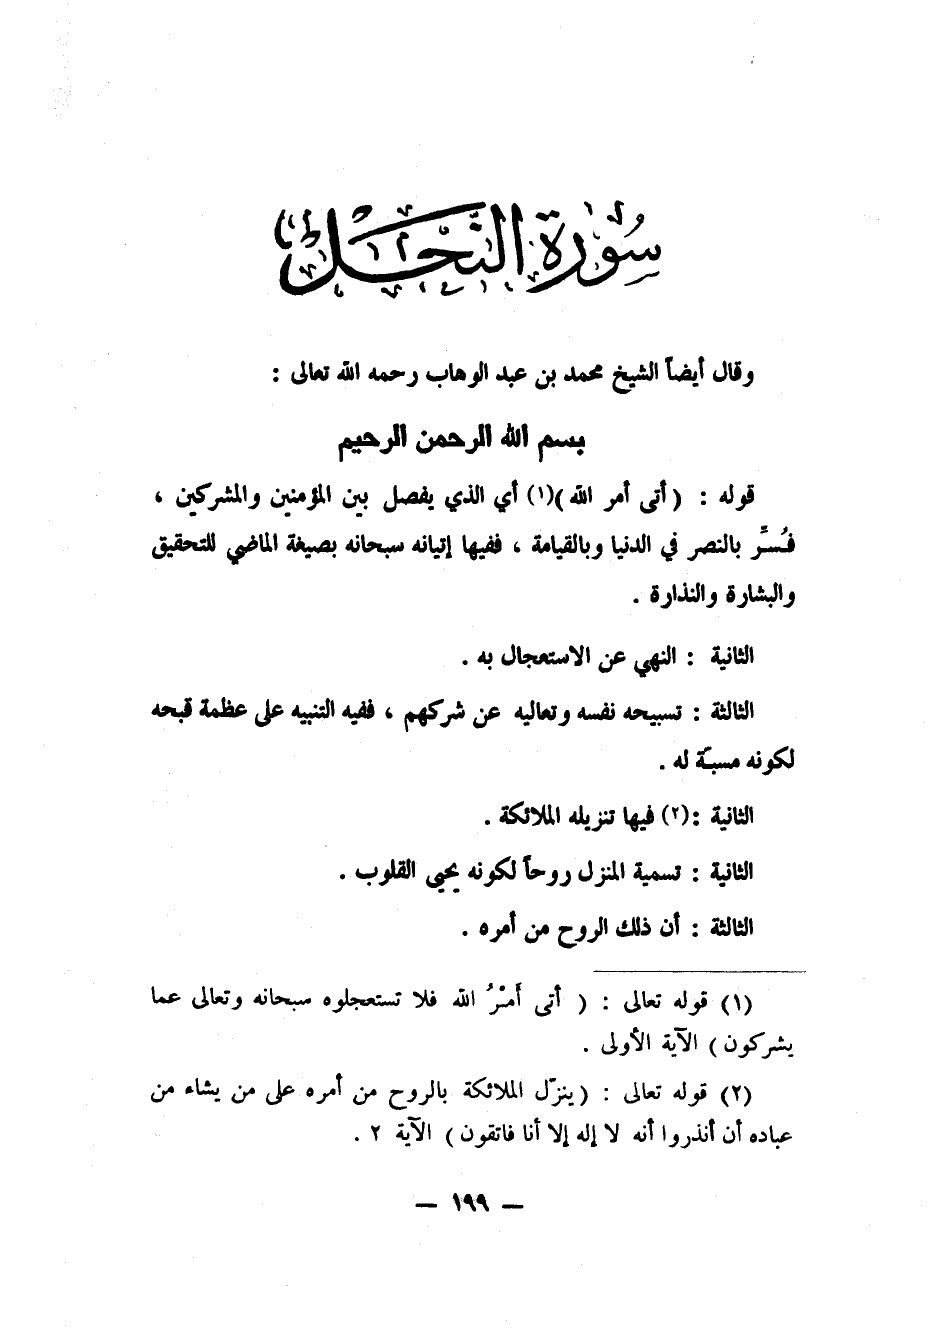 سورة النحل
وقال أيضاً الشيخ محمد بن عبد الوهاب رحمه الله تعالى :
بسم الله الرحمن الرحيم
قوله : ( أتى أمر الله )(١) أي الذي يفصل بين المؤمنين والمشركين ،
فُسِّر بالنصر في الدنيا وبالقيامة ، ففيها إتيانه سبحانه بصيغة الماضي للتحقيق
والبشارة والنذارة .
الثانية : النهي عن الاستعجال به .
الثالثة : تسبيحه نفسه وتعاليه عن شركهم ، ففيه التنبيه على عظمة قبحه
لكونه مسبّة له .
الثانية :(٢) فيها تنزيله الملائكة .
الثانية : تسمية المنزل روحاً لكونه يحيى القلوب .
الثالثة : أن ذلك الروح من أمره .
(١) قوله تعالى : ( أتى أَمْرُ الله فلا تستعجلوه سبحانه وتعالى عما
يشركون ) الآية الأولى .
(٢) قوله تعالى : ( ينزّل الملائكة بالروح من أمره على من يشاء من
عباده أن أنذروا أنه لا إله إلا أنا فاتقون ) الآية ٢ .
— ١٩٩ —